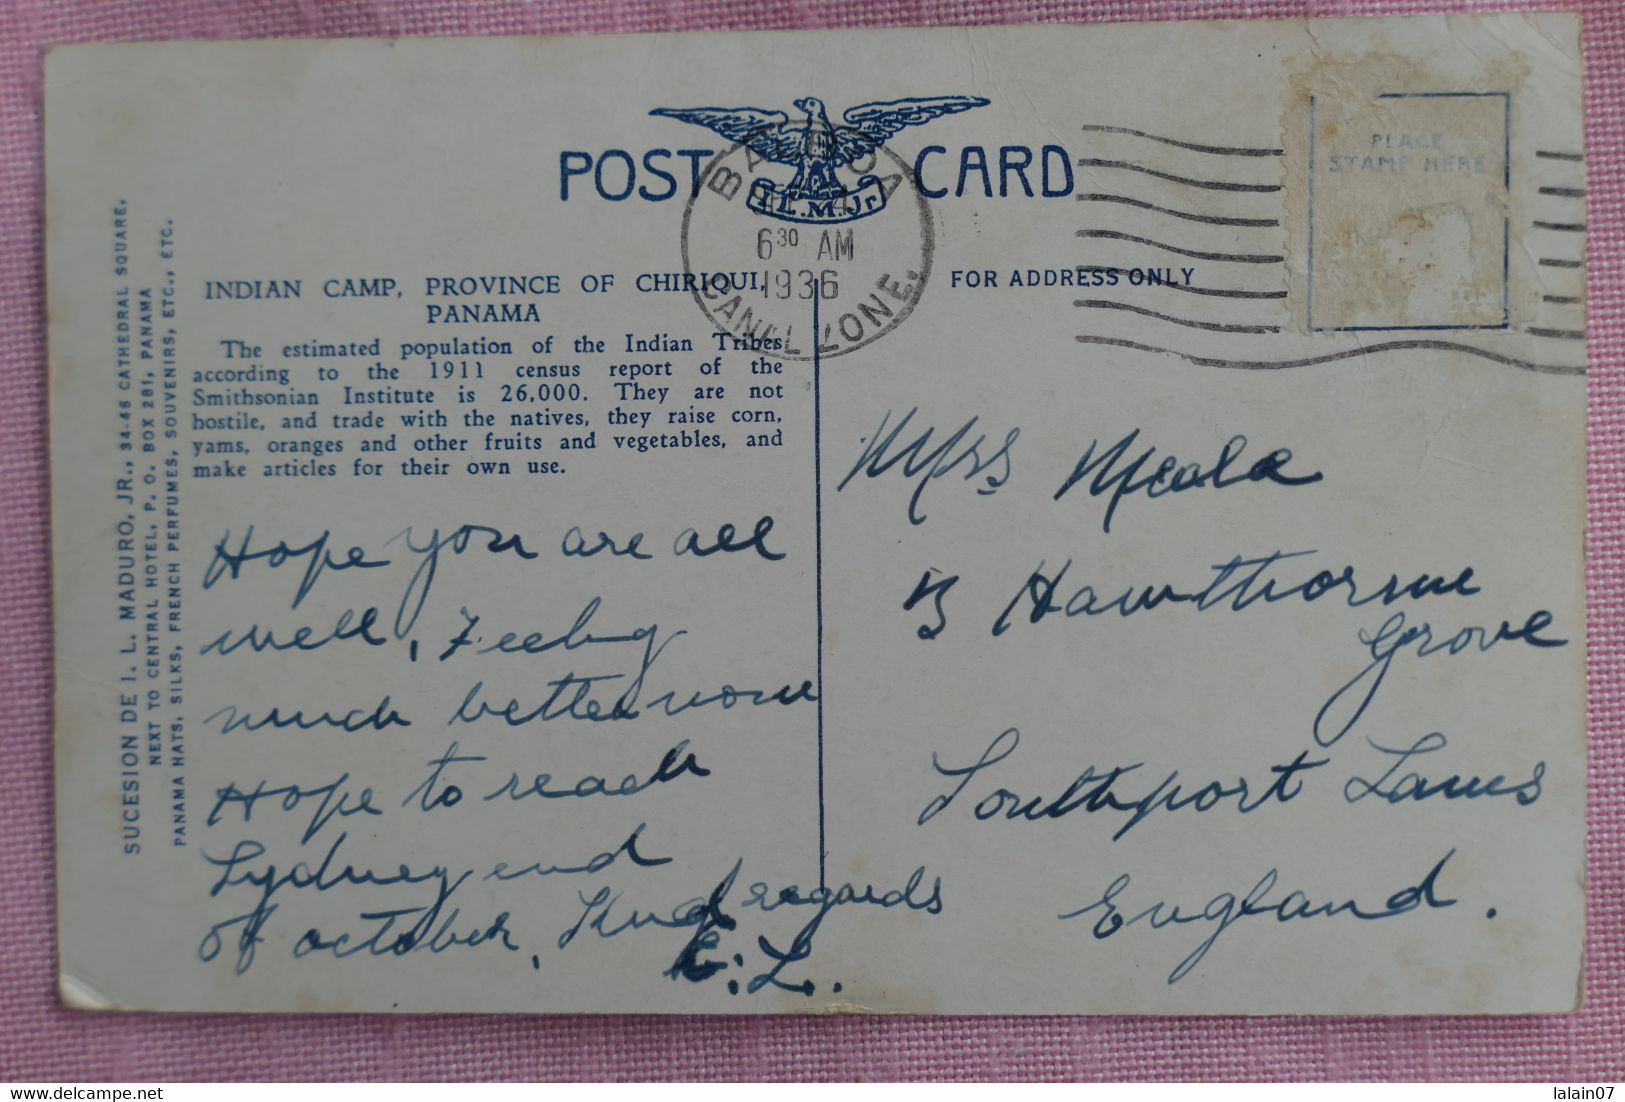 POST CARD
I.L.M.Jr.
BALBOA
6³⁰ AM
1936
CANAL ZONE.
PLACE
STAMP HERE
INDIAN CAMP, PROVINCE OF CHIRIQUI,
PANAMA
The estimated population of the Indian Tribes
according to the 1911 census report of the
Smithsonian Institute is 26,000. They are not
hostile, and trade with the natives, they raise corn,
yams, oranges and other fruits and vegetables, and
make articles for their own use.
SUCESION DE I. L. MADURO, JR., 34-46 CATHEDRAL SQUARE,
NEXT TO CENTRAL HOTEL, P. O. BOX 281, PANAMA
PANAMA HATS, SILKS, FRENCH PERFUMES, SOUVENIRS, ETC., ETC.
Hope you are all
well, Feeling
much better now
Hope to reach
Sydney end
of october, Kind regards
E.L.
FOR ADDRESS ONLY
Mrs
Hawthorne
Grove
Southport Lancs
England.
lalain07